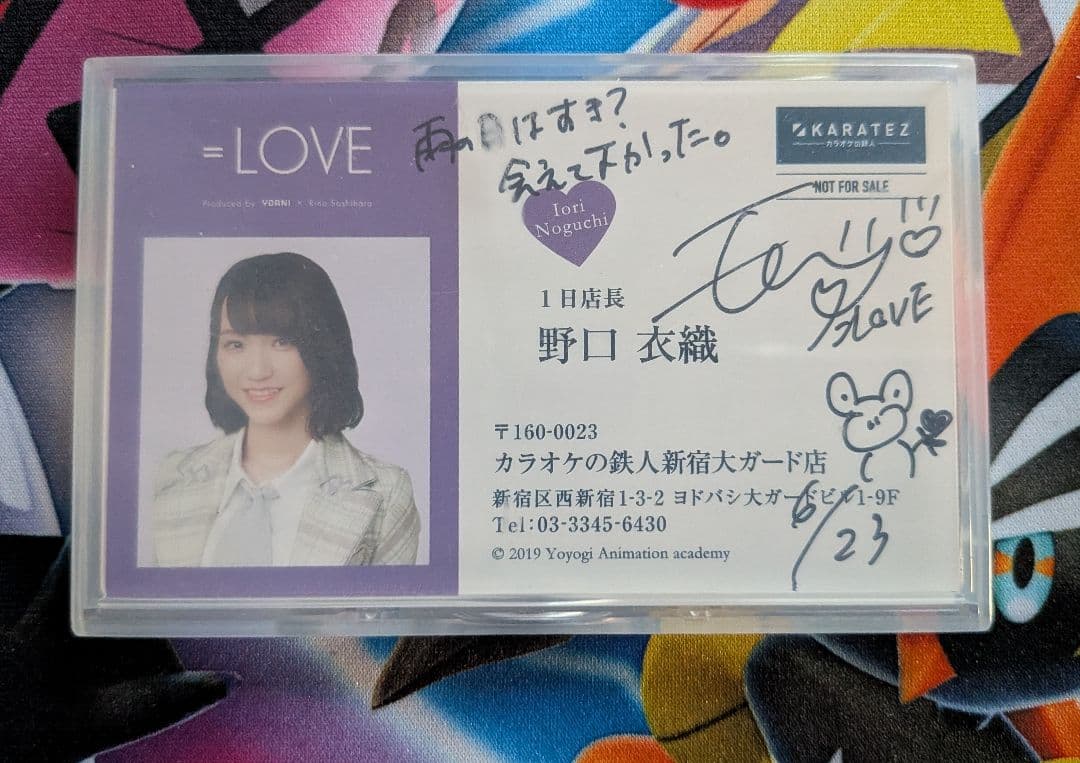 =LOVE
Produced by YOANI × Rino Sashihara
雨の日はすき?
会えてよかった。
Iori
Noguchi
KARATEZ
カラオケの鉄人
NOT FOR SALE
1日店長
野口 衣織
=LOVE
〒160-0023
カラオケの鉄人新宿大ガード店
新宿区西新宿1-3-2 ヨドバシ大ガードビル1-9F
Tel:03-3345-6430
© 2019 Yoyogi Animation academy
6/23